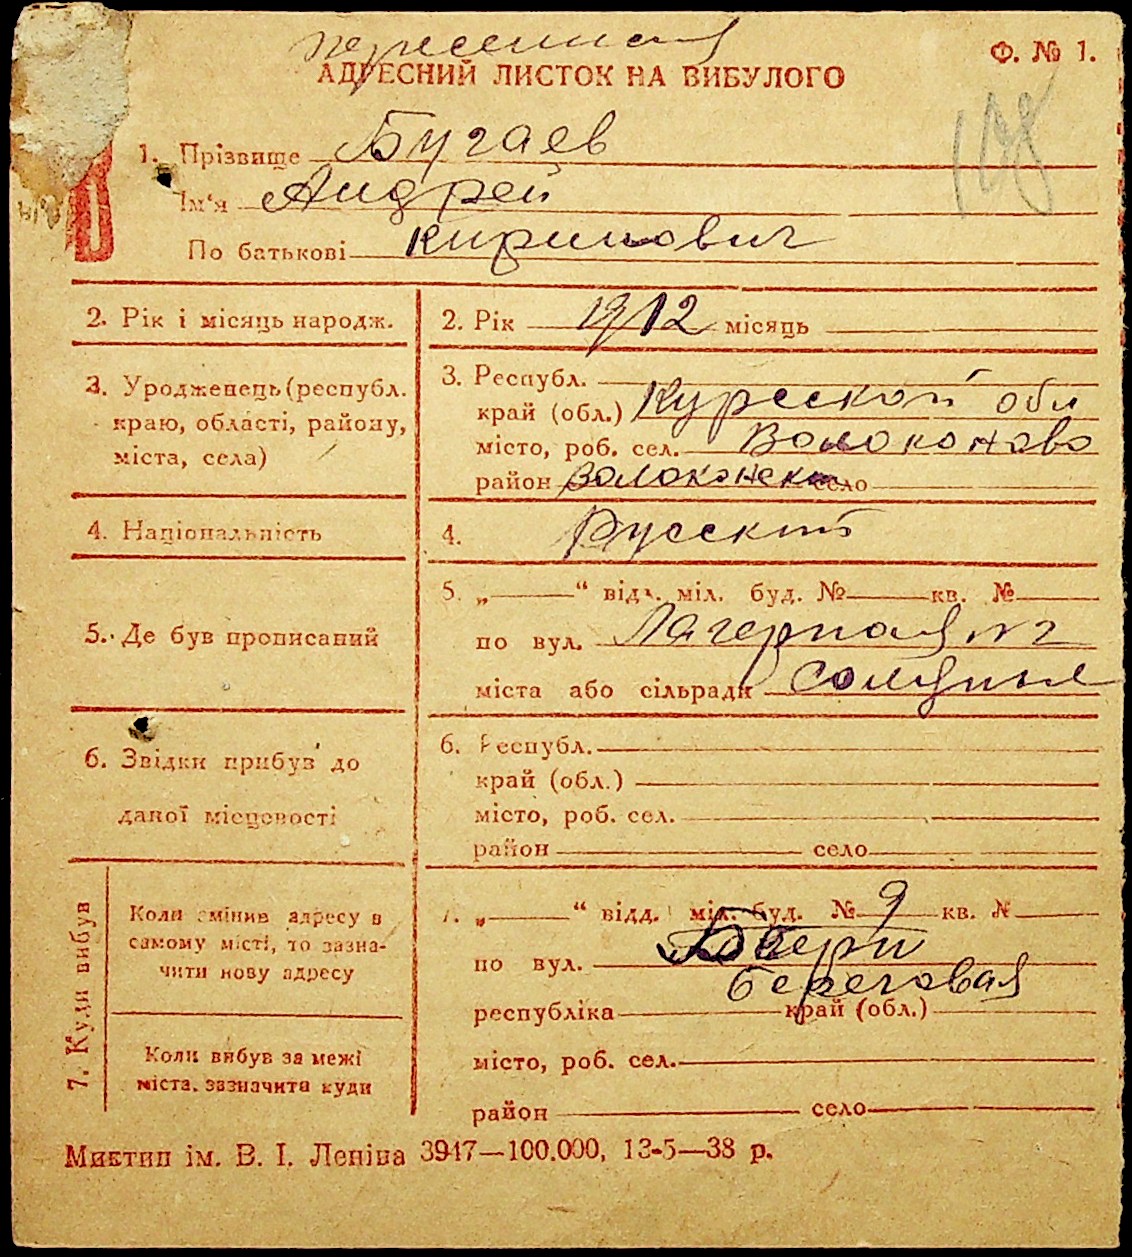 Ф. № 1.
АДРЕСНИЙ ЛИСТОК НА ВИБУЛОГО
1. Прізвище Бугаев
Ім'я Андрей
По батькові Кирилович
2. Рік і місяць народж.
2. Рік 1912 місяць
3. Уродженець (республ.
краю, області, району,
міста, села)
3. Республ.
край (обл.) Курской обл
місто, роб. сел. Волоконово
район село
4. Національність
4. Русский
5. Де був прописаний
5. „ “ відд. міл. буд. № кв. №
по вул. Лагерная № 2
міста або сільради
6. Звідки прибув до
даної місцевості
6. Республ.
край (обл.)
місто, роб. сел.
район село
7. Куди вибув
Коли змінив адресу в
самому місті, то зазна-
чити нову адресу
Коли вибув за межі
міста, зазначити куди
7. „ “ відд. міл. буд. № 9 кв. №
по вул.
Береговая
республіка край (обл.)
місто, роб. сел.
район село
Миктип ім. В. І. Леніна 3947—100.000, 13-5—38 р.